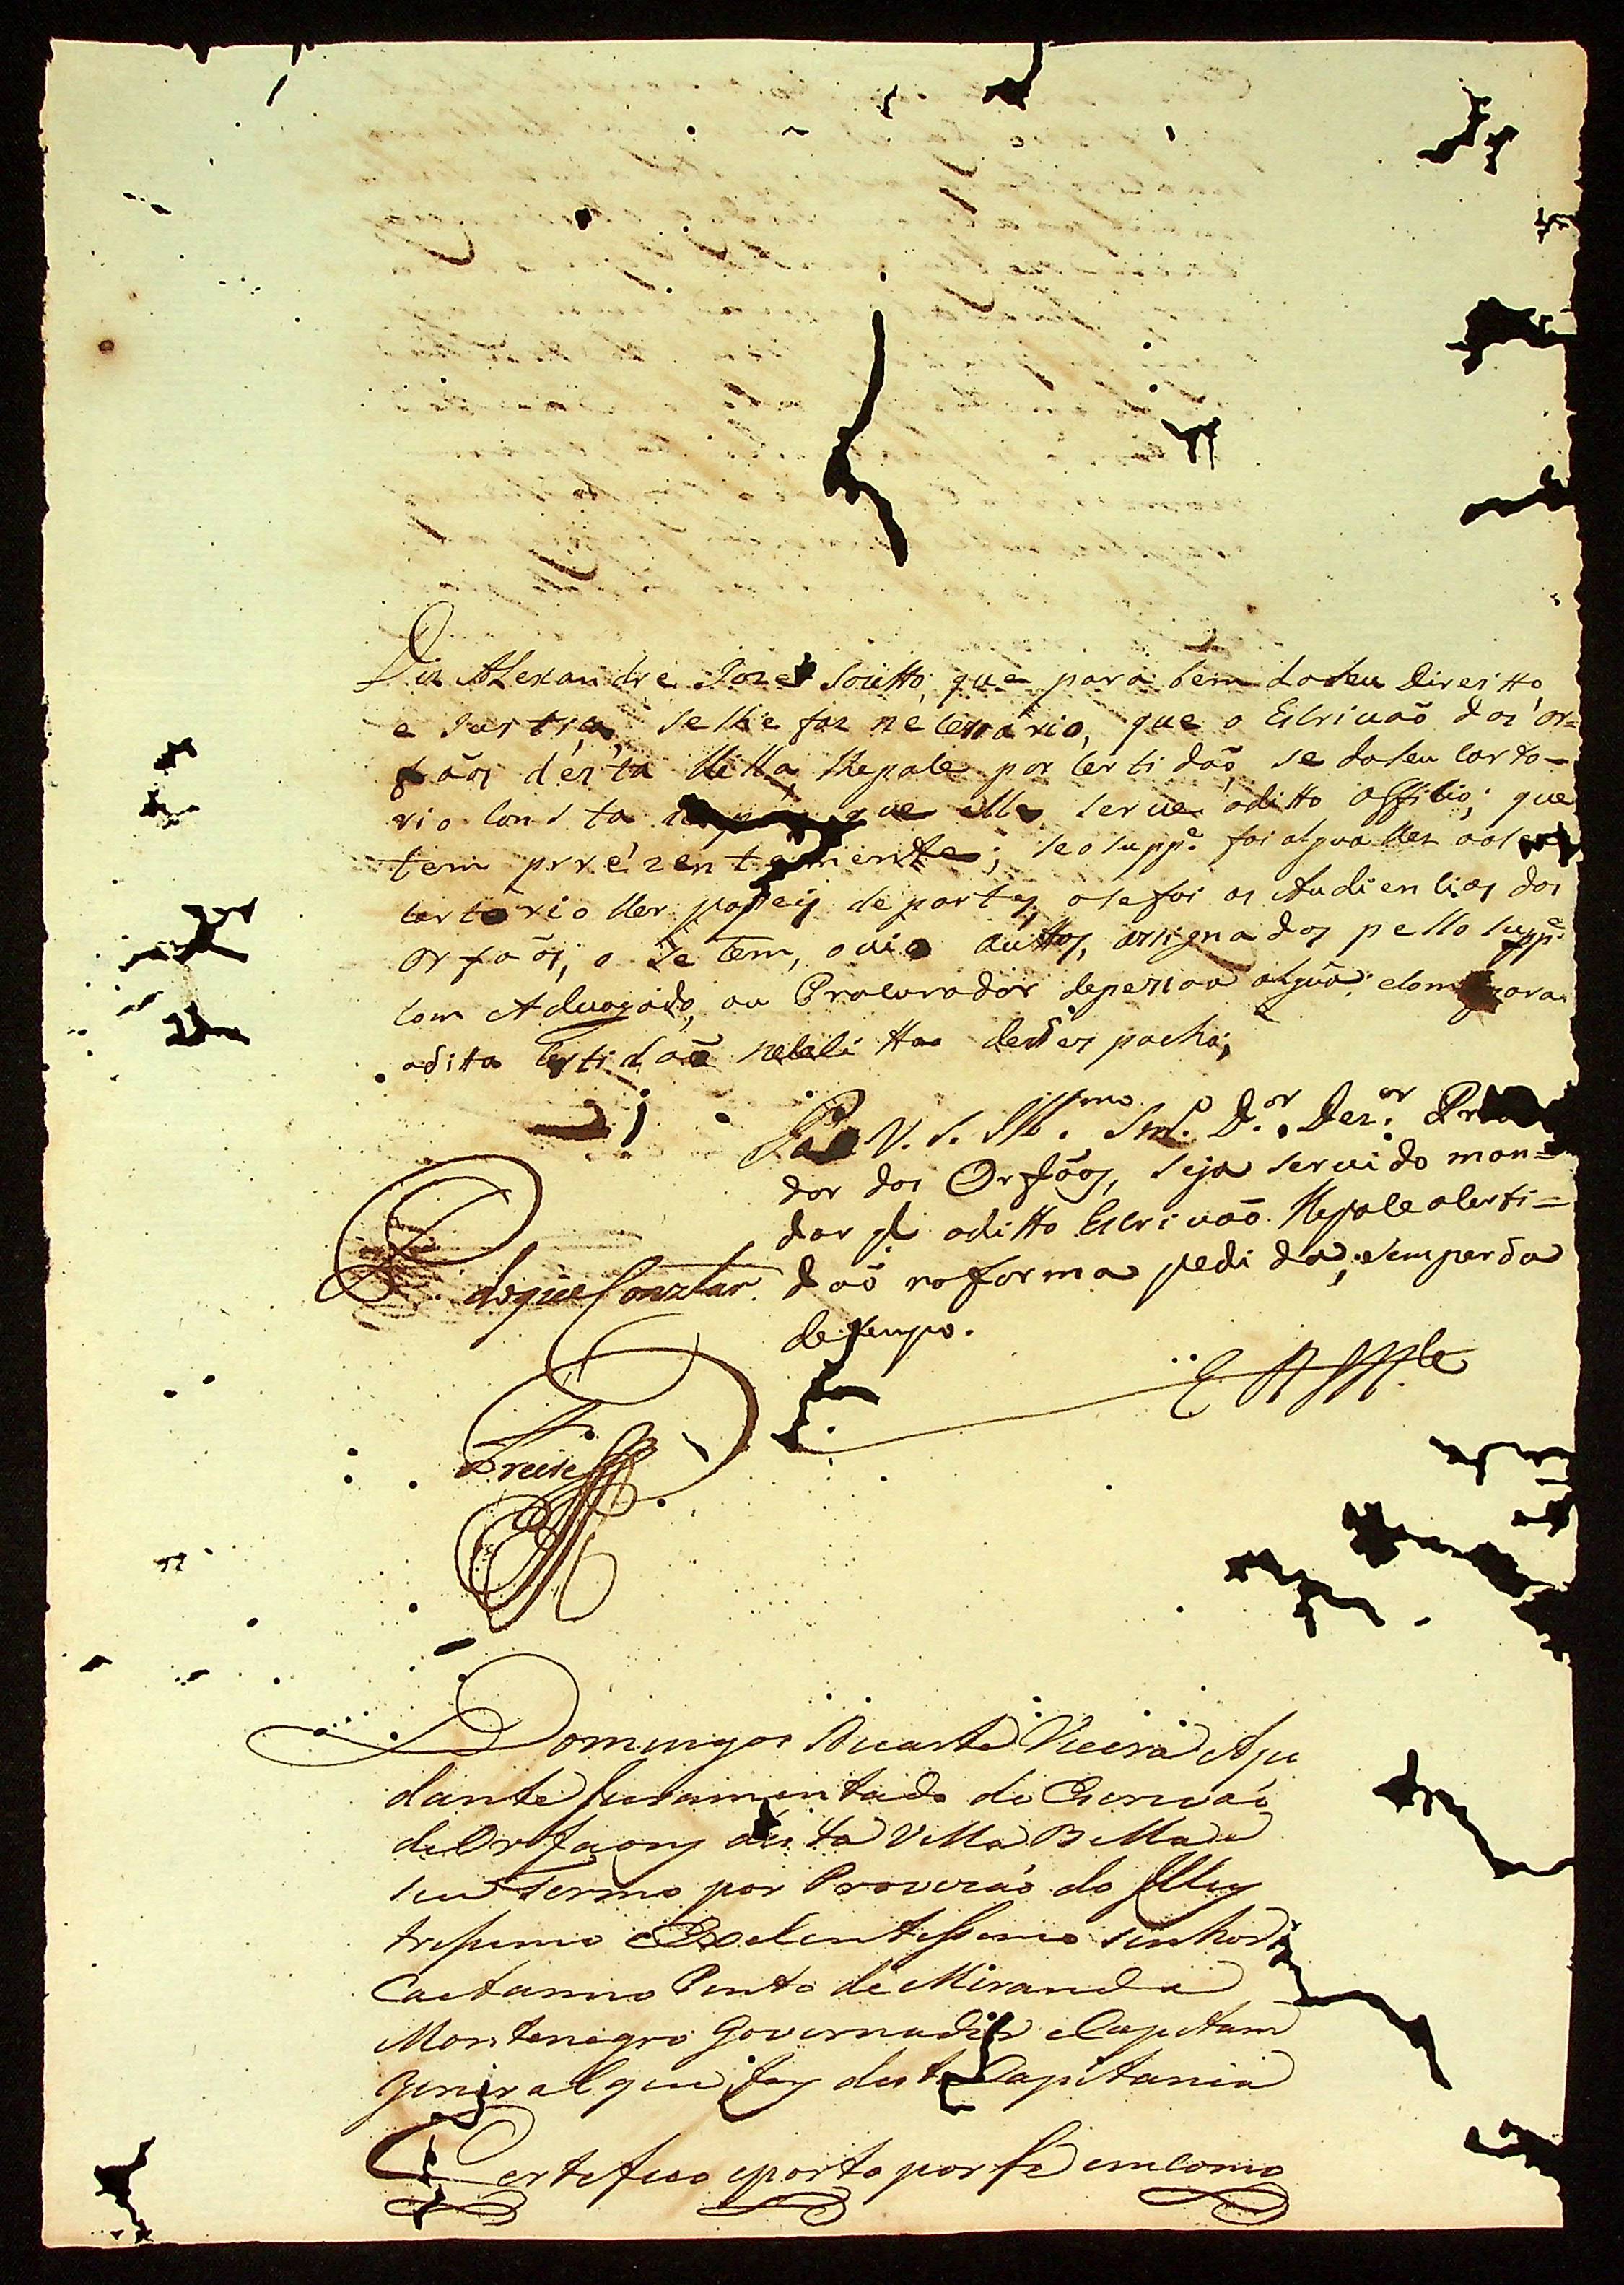 Dis Alexandre Joze Soutto, que para bem do seu Direitto
e Justiça, se lhe faz necessario, que o Escrivaõ dos or=
faõs désta Villa, lhe pase por certidaõ, se do seu carto-
rio consta que elle serve o ditto officio; que
tem prrézentemente; se o supp.e foi algua ves ao seu
cartorio ver papeis de partes, o se foi as Audiencias dos
orfaõs, o se tem, o vio auttos, asignados pello supp.e
com Advogado, ou Procurador de pesoa algũa; e como para
a ditta certidaõ necesitta de despacho;
P. a V. S. Ill.mo Snr. D.or Dez.or Pro
dor dos Orfõos, seja servido man=
dar q̃ o ditto Escrivaõ lhe pase a certi=
daõ na forma pedida, sem perda
de tempo.
P. do que Constar.
E R M.ce
Freire
Domingos Duarte Vieira Aju
dante Juramentado do Escrivaó
de Orfaons désta Villa Bella e
seu termo por Provizaó do Illus
trissimo e Excelentissimo Senhor
Caetanno Pinto de Miranda
Montenegro Governador e Capitam
General que foy desta Capitania
Certefico e porto por fé em como